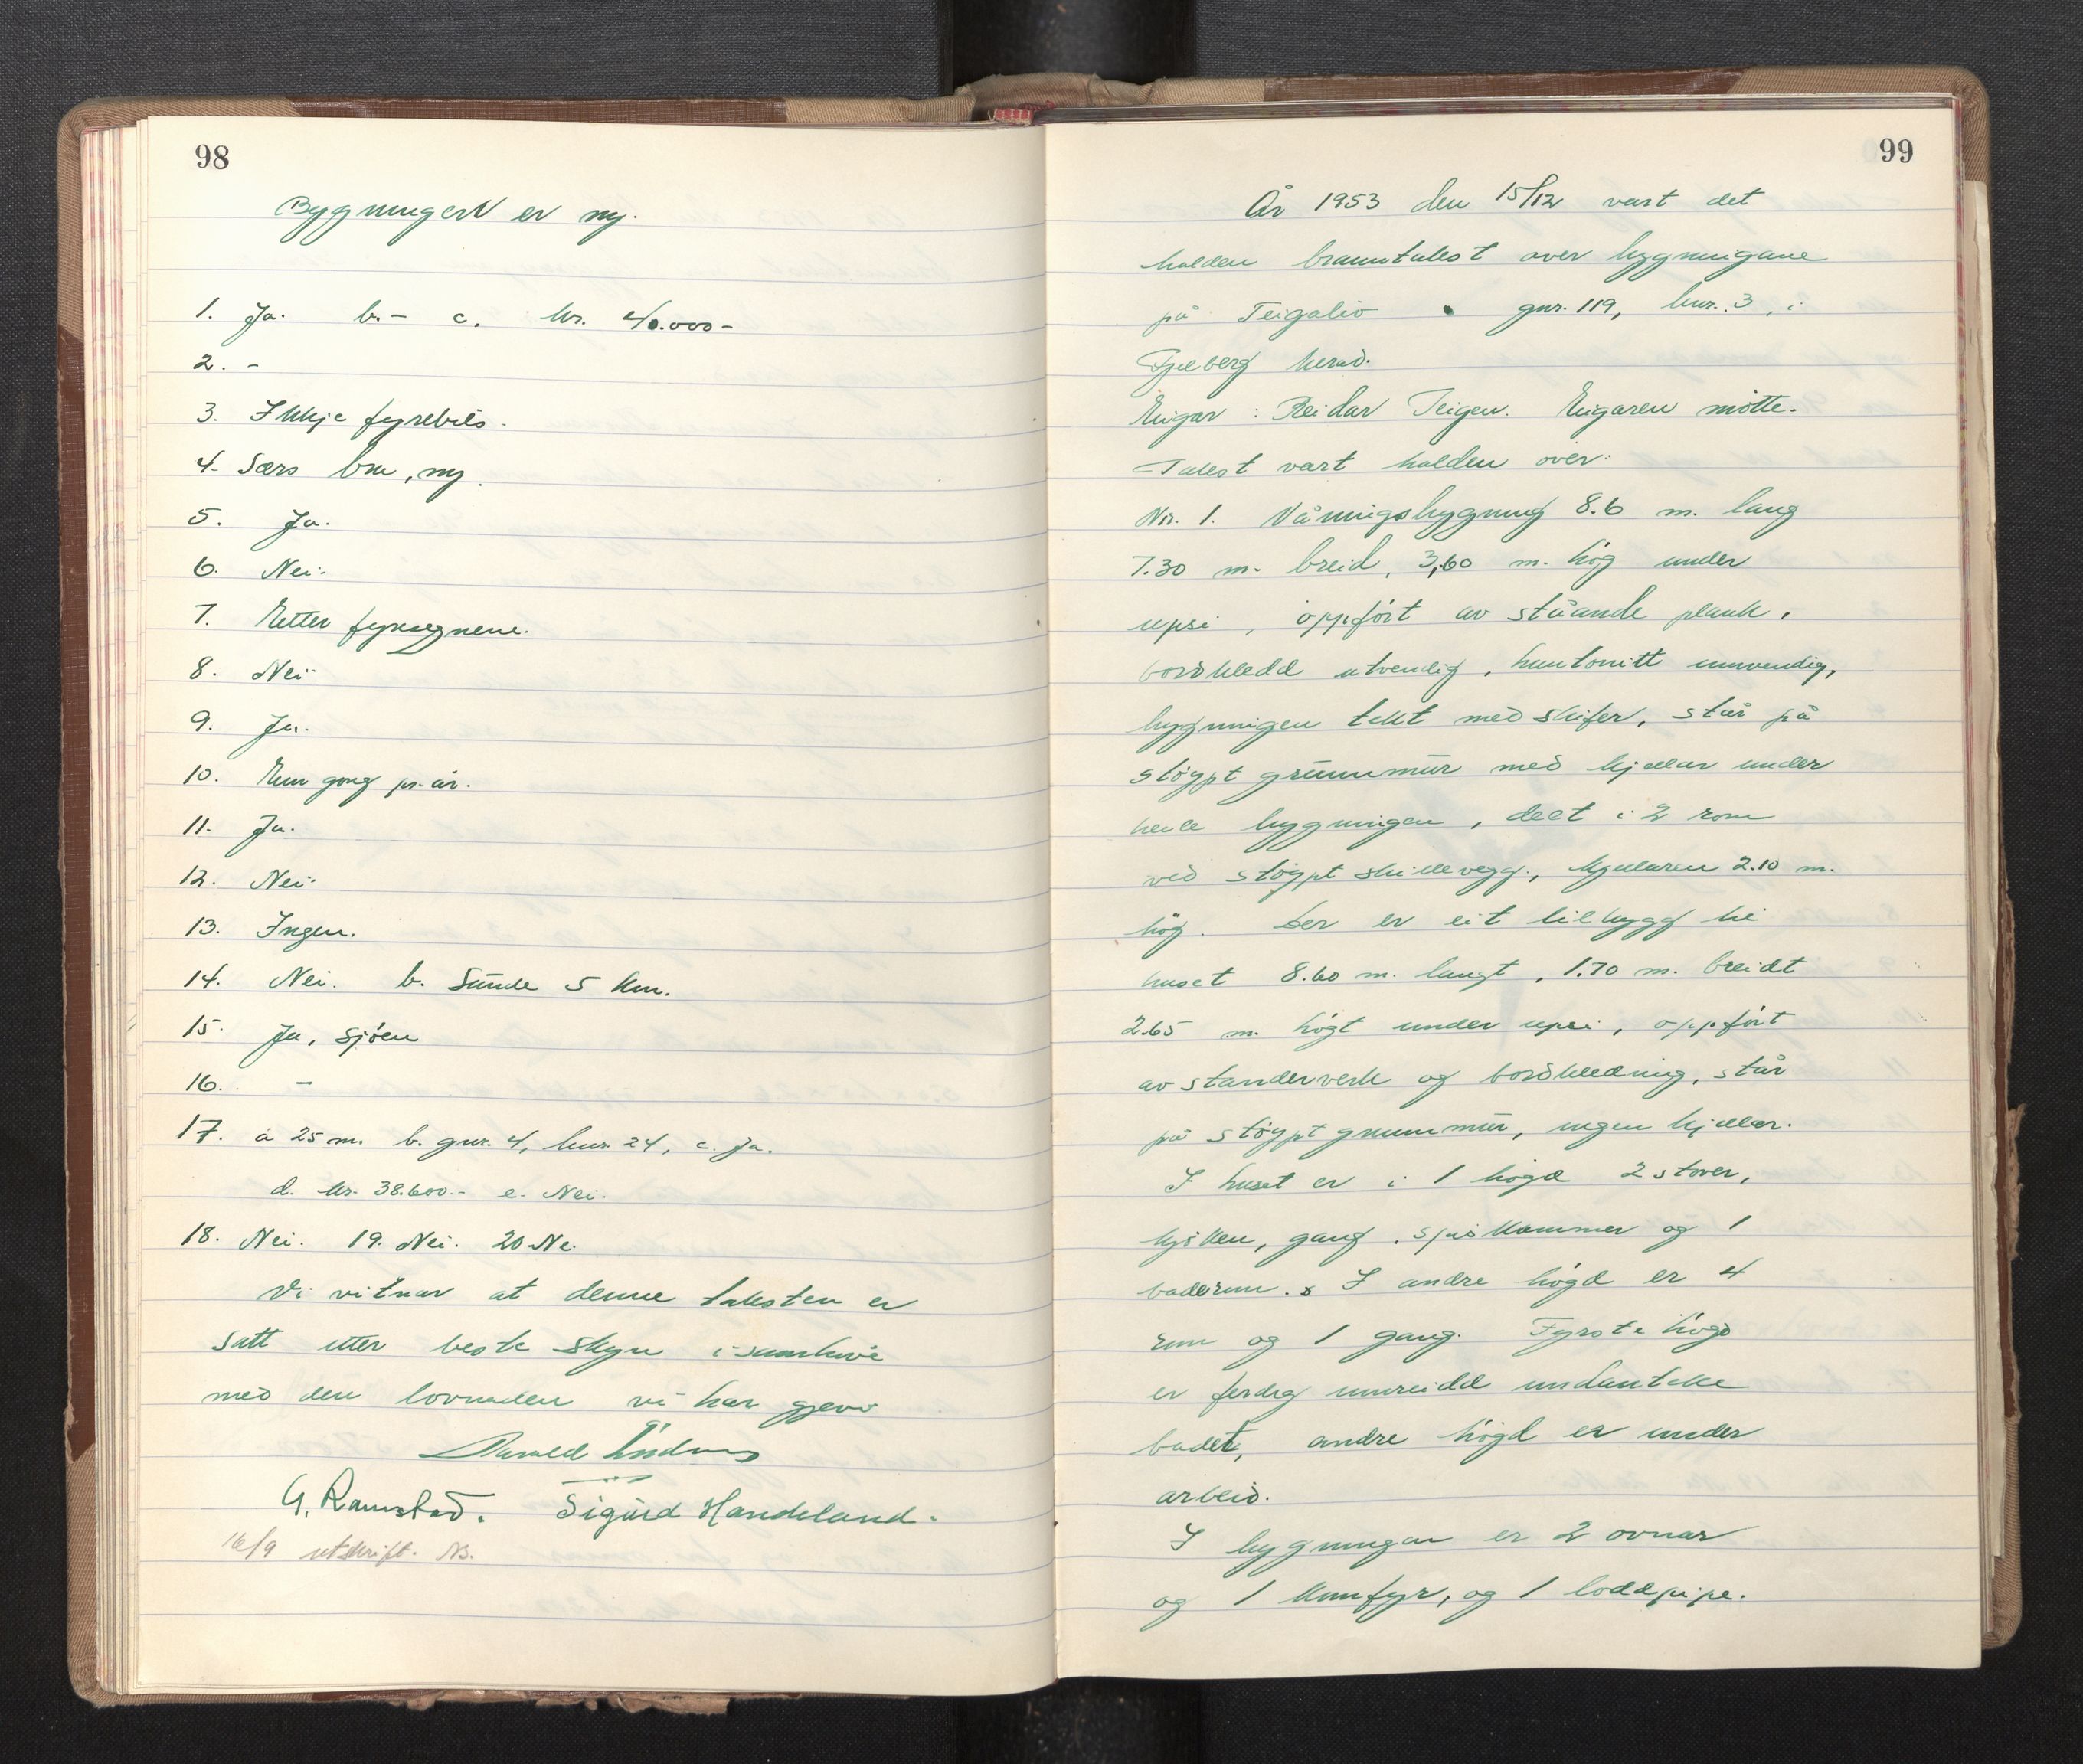 98
Bygningen er ny.
1. Ja. b. - c. kr. 40.000 -
2. -
3. Ikkje fyrebils.
4. Særs bra, ny.
5. Ja.
6. Nei.
7. Etter fyresegnene.
8. Nei.
9. Ja.
10. Ein gong pr. år.
11. Ja.
12. Nei.
13. Ingen.
14. Nei. b. Sunde 5 km.
15. Ja, sjøen
16. -
17. a 25 m. b. gnr. 4, bnr. 24, c. Ja.
d. kr. 38.600.- e. Nei.
18. Nei. 19. Nei. 20. Ne.
Vi vitnar at denne taksten er
satt etter beste skyn i samhøve
med den lovnaden vi har gjeve
Harald
G. Ramstad. Sigurd Handeland.
16/9 utskrift. NB.
99
År 1953 den 15/12 vart det
halden branntakst over bygningane
på Teigaliö gnr. 119, bnr. 3, i
Fjelberg herad.
Eigar: Reidar Teigen. Eigaren møtte.
Takst vart halden over:
Nr. 1. Våningsbygning 8.6 m. lang
7.30 m. breid, 3,60 m. høg under
upsi, oppført av ståande plank,
bordkledd utvendig, huntonitt innvendig,
bygningen tekt med skifer, står på
støypt grunnmur med kjellar under
heile bygningen, delt i 2 rom
ved støypt skillevegg, kjellaren 2.10 m.
høg. Der er eit tilbygg til
huset 8.60 m. langt, 1.70 m. breidt
2.65 m. høgt under upsi, oppført
av standerverk og bordkledning, står
på støypt grunnmur, ingen kjellar.
I huset er i 1 høgd 2 stover,
kjøken, gang, spiskammer og 1
baderum. I andre høgd er 4
rum og 1 gang. Fyrste høgd
er ferdig innreidd undanteke
badet, andre høgd er under
arbeid.
I bygningen er 2 ovnar
og 1 komfyr, og 1 loddpipe.